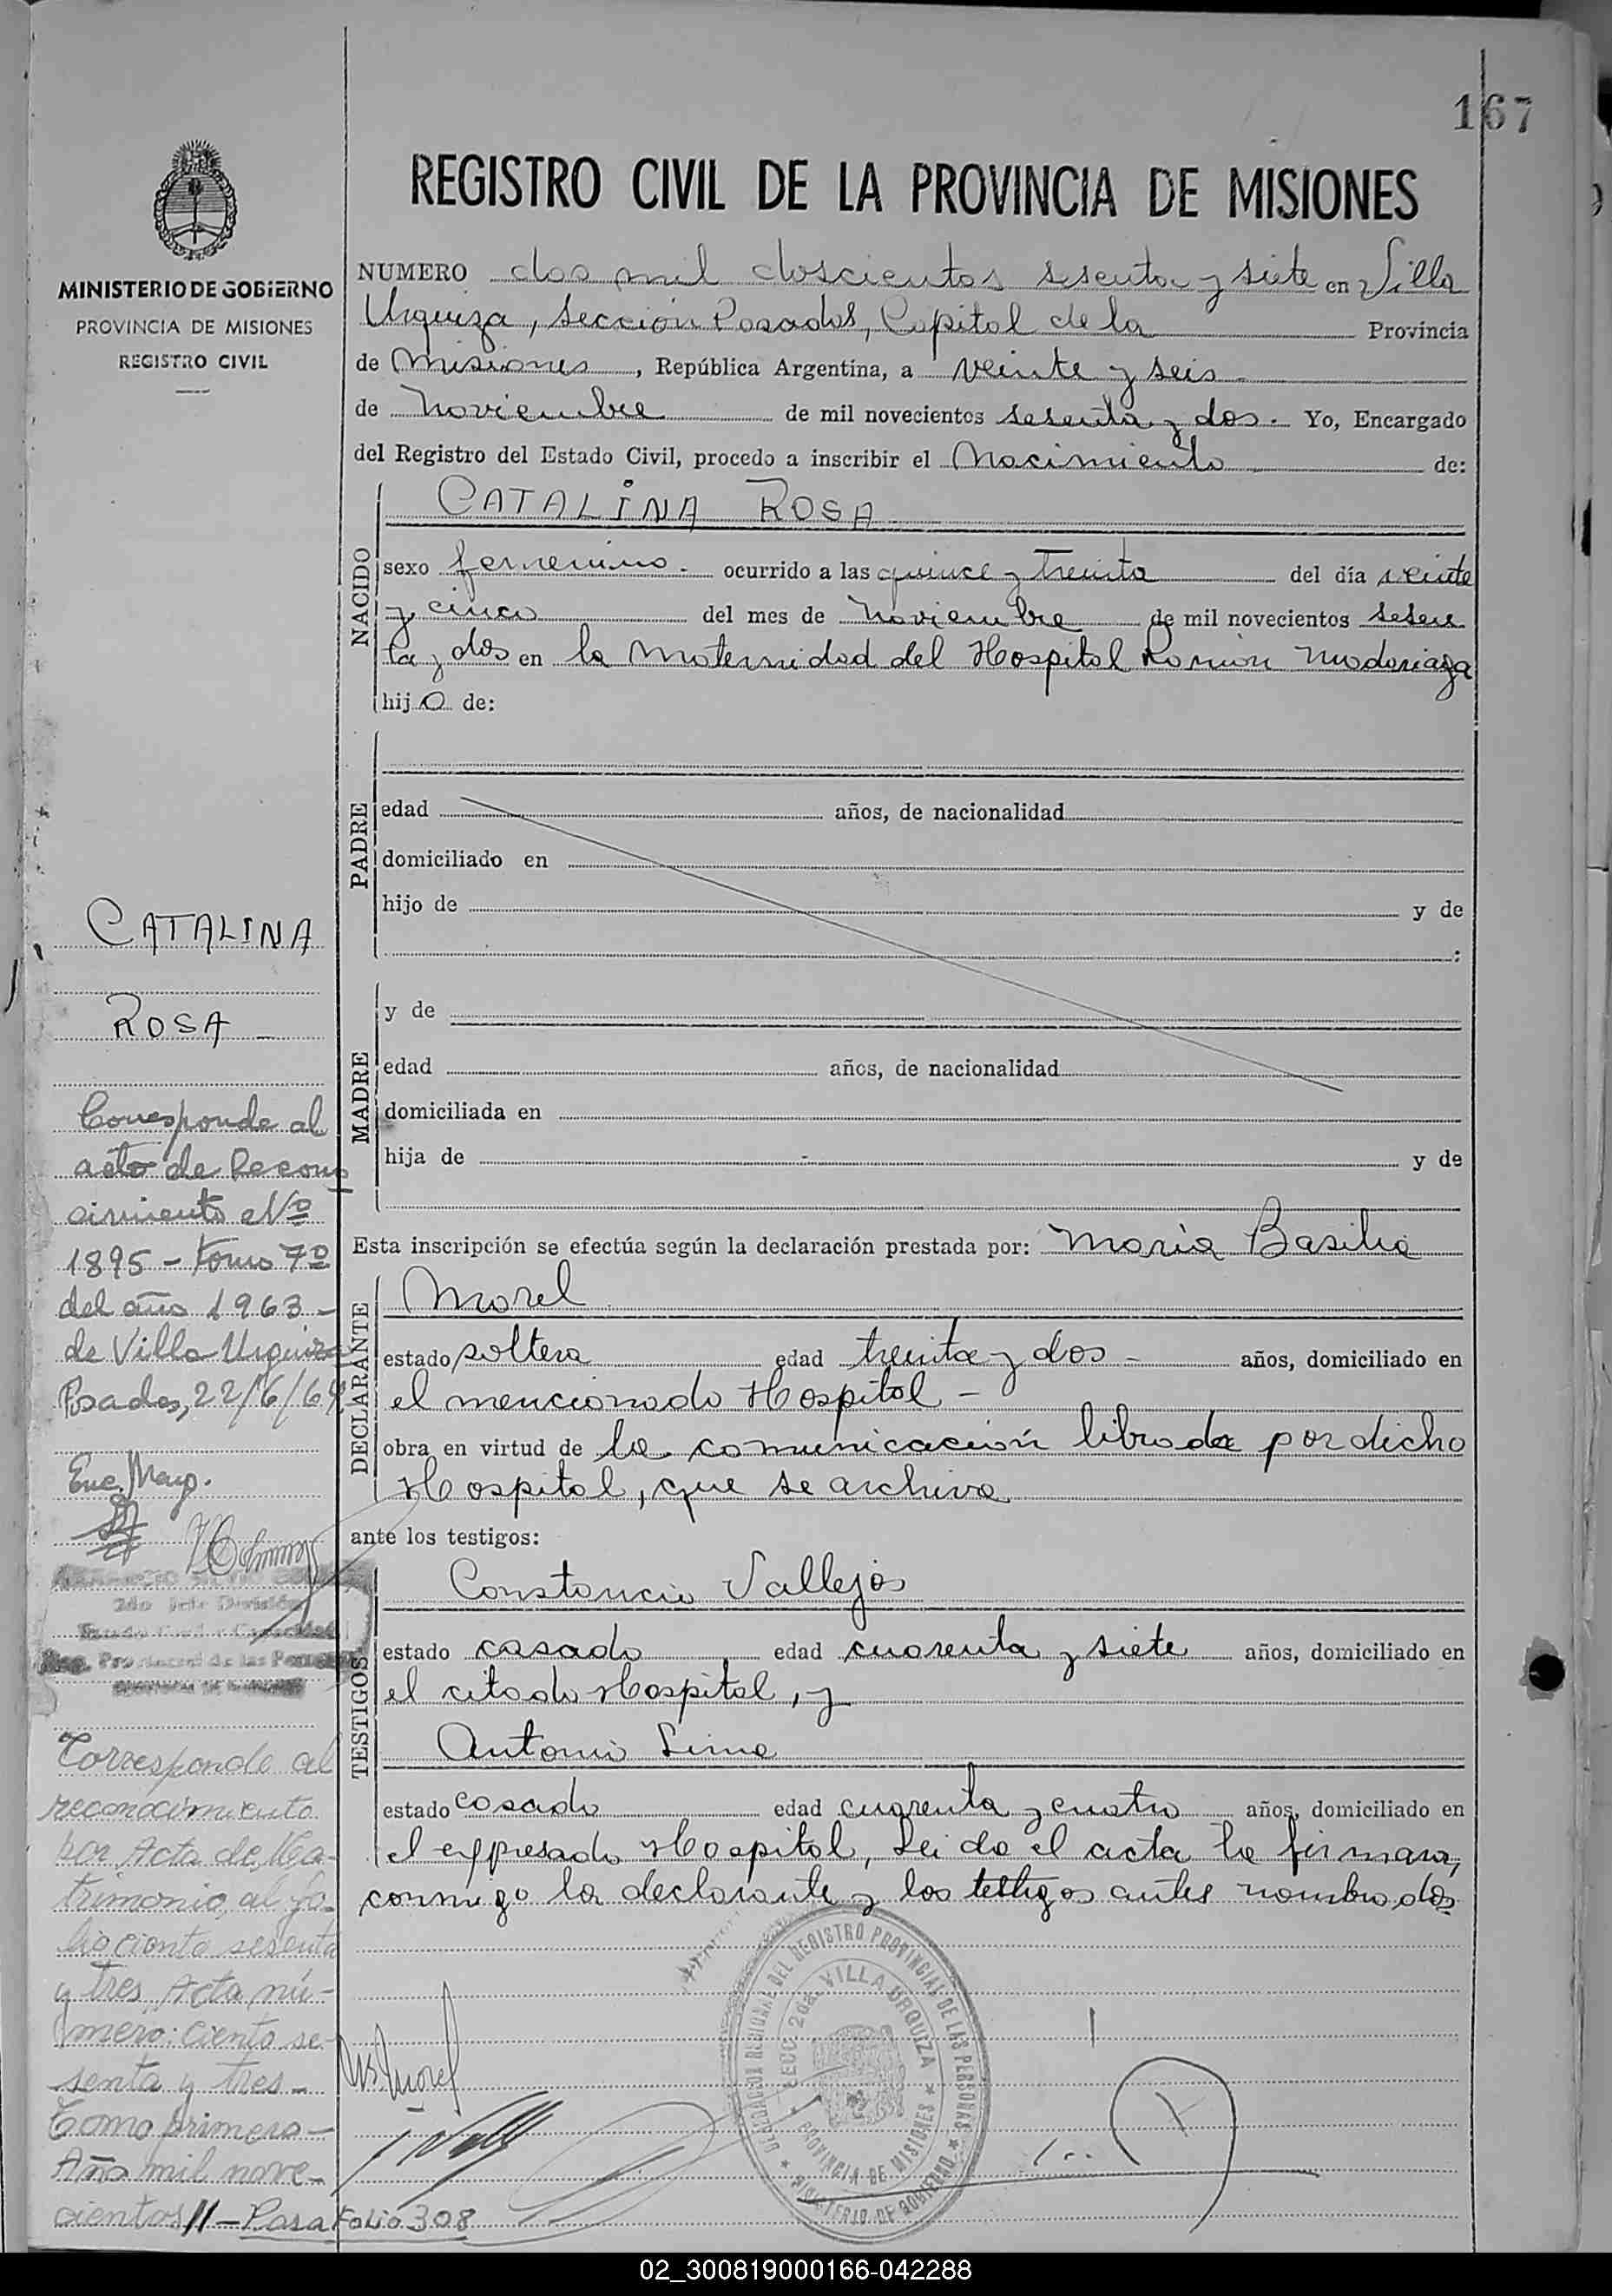 167
REGISTRO CIVIL DE LA PROVINCIA DE MISIONES
MINISTERIO DE GOBIERNO
PROVINCIA DE MISIONES
REGISTRO CIVIL
NUMERO dos mil doscientos sesenta y siete en Villa
Urquiza, Sección Posadas, Capital de la Provincia
de Misiones, República Argentina, a veinte y seis
de noviembre de mil novecientos sesenta y dos. Yo, Encargado
del Registro del Estado Civil, procedo a inscribir el Nacimiento de:
NACIDO
CATALINA ROSA
sexo femenino. ocurrido a las quince y treinta del día veinte
y cinco del mes de noviembre de mil novecientos sesen
ta y dos en la Maternidad del Hospital Ramón Madariaga
hija de:
PADRE
edad años, de nacionalidad
domiciliado en
hijo de y de
:
MADRE
y de
edad años, de nacionalidad
domiciliada en
hija de y de
Esta inscripción se efectúa según la declaración prestada por: María Basilia
DECLARANTE
Morel
estado soltera edad treinta y dos - años, domiciliado en
el mencionado Hospital -
obra en virtud de la comunicación librada por dicho
Hospital, que se archiva
ante los testigos:
TESTIGOS
Constancio Vallejos
estado casado edad cuarenta y siete años, domiciliado en
el citado Hospital, y
Antonio Lima
estado casado edad cuarenta y cuatro años, domiciliado en
el expresado Hospital, Leida el acta la firman,
conmigo la declarante y los testigos antes nombrados
CATALINA
ROSA -
Corresponde al
acta de Recono
cimiento Nº
1895 - tomo 7º
del año 1963 -
de Villa Urquiza
Posadas, 22/6/64
Enc. Mayo.
2do Jefe División
Corresponde al
reconocimiento
por Acta de Ma-
trimonio, al fo-
lio ciento sesenta
y tres Acta nú-
mero: ciento se-
senta y tres -
Tomo primero -
Año mil nove-
cientos // - Pasa Folio 308
Morel
DELEGACION REGIONAL DEL REGISTRO PROVINCIAL DE LAS PERSONAS
SECC. 2da. VILLA URQUIZA
PROVINCIA DE MISIONES
MINISTERIO DE GOBIERNO
02_300819000166-042288